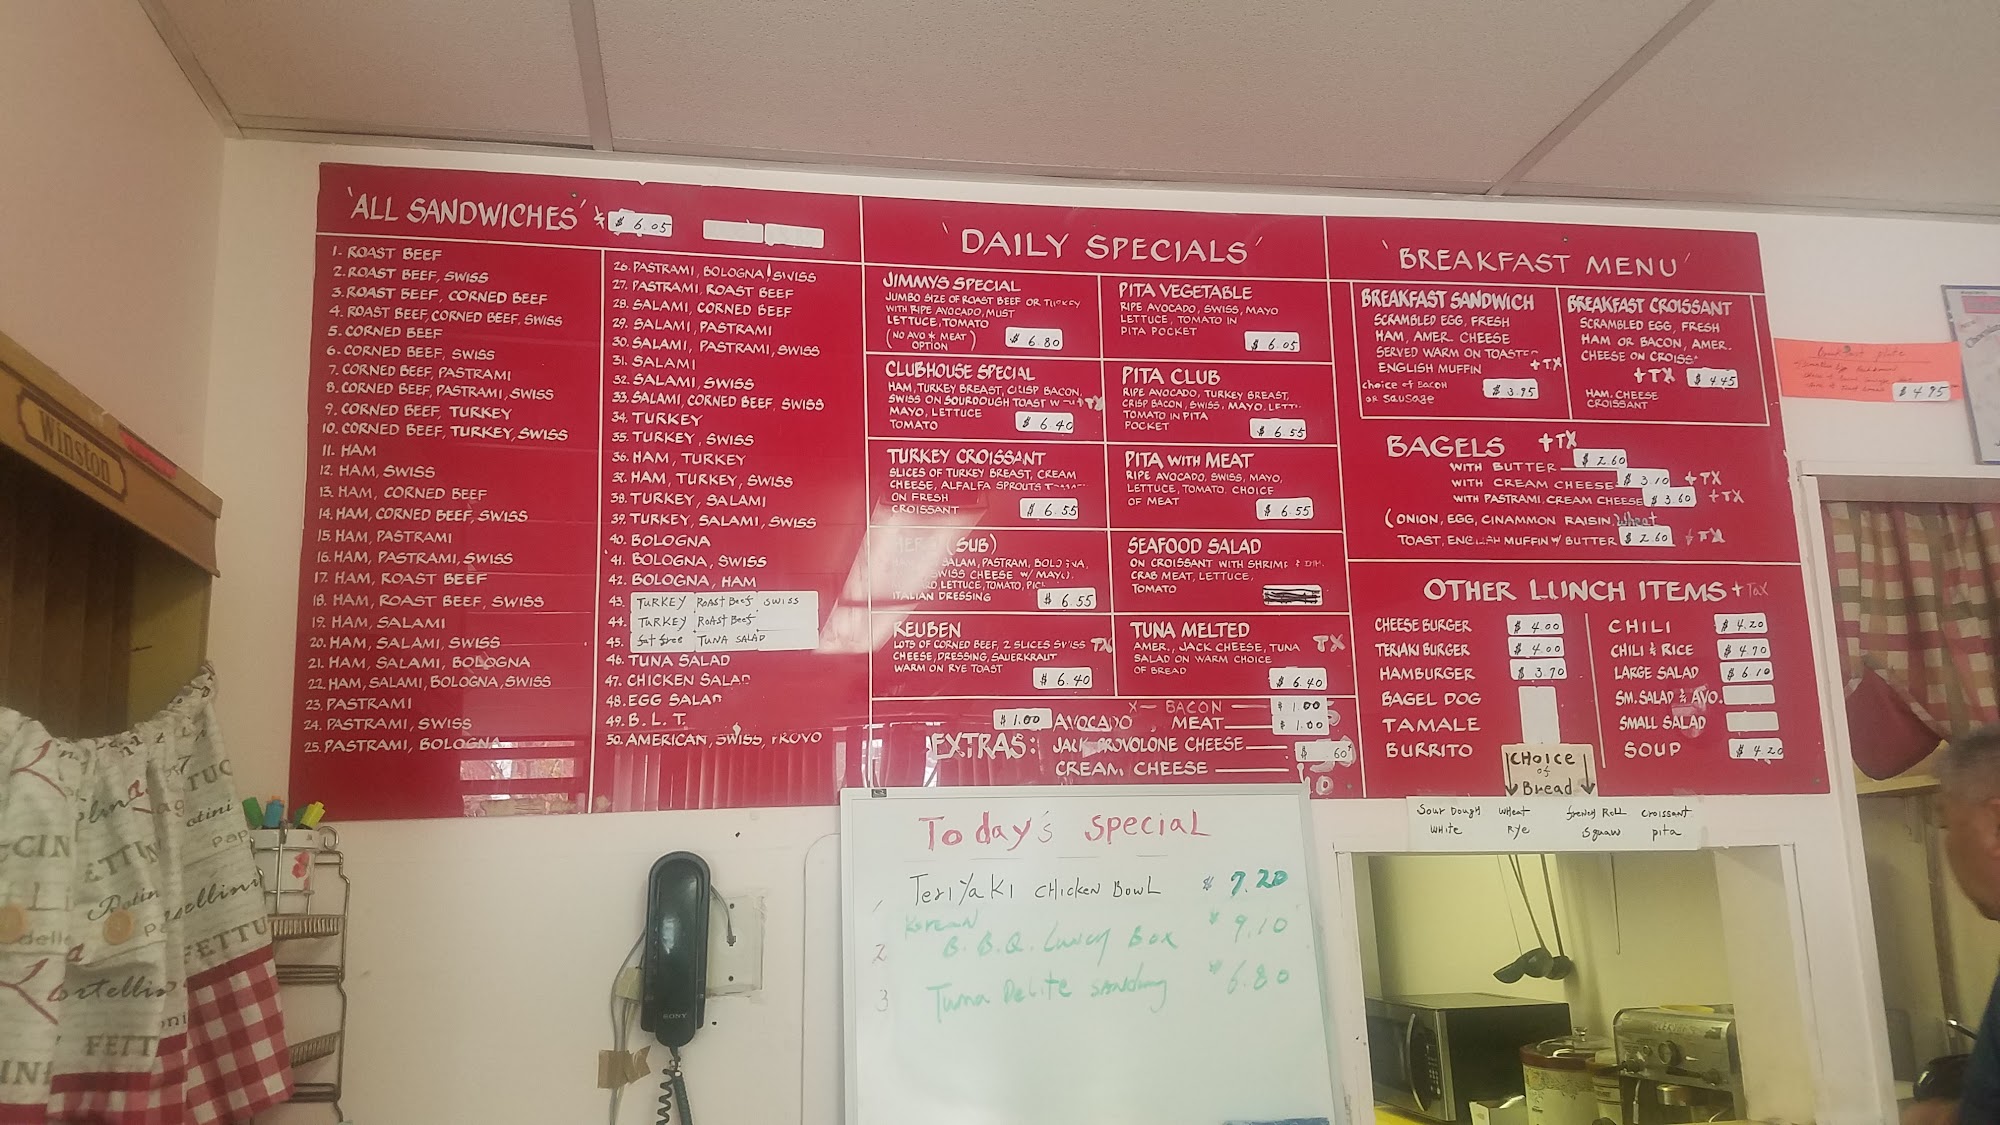 'ALL SANDWICHES' $ 6.05
1. ROAST BEEF
2. ROAST BEEF, SWISS
3. ROAST BEEF, CORNED BEEF
4. ROAST BEEF, CORNED BEEF, SWISS
5. CORNED BEEF
6. CORNED BEEF, SWISS
7. CORNED BEEF, PASTRAMI
8. CORNED BEEF, PASTRAMI, SWISS
9. CORNED BEEF, TURKEY
10. CORNED BEEF, TURKEY, SWISS
11. HAM
12. HAM, SWISS
13. HAM, CORNED BEEF
14. HAM, CORNED BEEF, SWISS
15. HAM, PASTRAMI
16. HAM, PASTRAMI, SWISS
17. HAM, ROAST BEEF
18. HAM, ROAST BEEF, SWISS
19. HAM, SALAMI
20. HAM, SALAMI, SWISS
21. HAM, SALAMI, BOLOGNA
22. HAM, SALAMI, BOLOGNA, SWISS
23. PASTRAMI
24. PASTRAMI, SWISS
25. PASTRAMI, BOLOGNA
26. PASTRAMI, BOLOGNA, SWISS
27. PASTRAMI, ROAST BEEF
28. SALAMI, CORNED BEEF
29. SALAMI, PASTRAMI
30. SALAMI, PASTRAMI, SWISS
31. SALAMI
32. SALAMI, SWISS
33. SALAMI, CORNED BEEF, SWISS
34. TURKEY
35. TURKEY, SWISS
36. HAM, TURKEY
37. HAM, TURKEY, SWISS
38. TURKEY, SALAMI
39. TURKEY, SALAMI, SWISS
40. BOLOGNA
41. BOLOGNA, SWISS
42. BOLOGNA, HAM
43. TURKEY ROAST BEEF SWISS
44. TURKEY ROAST BEEF
45. fat free TUNA SALAD
46. TUNA SALAD
47. CHICKEN SALAD
48. EGG SALAD
49. B. L. T.
50. AMERICAN, SWISS, PROVO
'DAILY SPECIALS'
JIMMYS SPECIAL
JUMBO SIZE OF ROAST BEEF OR TURKEY
WITH RIPE AVOCADO, MUST
LETTUCE, TOMATO
(NO AVO * MEAT)
OPTION
$ 6.80
CLUBHOUSE SPECIAL
HAM, TURKEY BREAST, CRISP BACON,
SWISS ON SOURDOUGH TOAST WITH TX
MAYO, LETTUCE
TOMATO
$ 6.40
TURKEY CROISSANT
SLICES OF TURKEY BREAST, CREAM
CHEESE, ALFALFA SPROUTS
ON FRESH
CROISSANT
$ 6.55
(SUB)
SALAM, PASTRAM, BOLOGNA,
SWISS CHEESE W/ MAYO,
LETTUCE, TOMATO,
ITALIAN DRESSING
$ 6.55
REUBEN
LOTS OF CORNED BEEF, 2 SLICES SWISS TX
CHEESE, DRESSING, SAUERKRAUT
WARM ON RYE TOAST
$ 6.40
PITA VEGETABLE
RIPE AVOCADO, SWISS, MAYO
LETTUCE, TOMATO IN
PITA POCKET
$ 6.05
PITA CLUB
RIPE AVOCADO, TURKEY BREAST,
CRISP BACON, SWISS, MAYO, LETT
TOMATO IN PITA
POCKET
$ 6.55
PITA WITH MEAT
RIPE AVOCADO, SWISS, MAYO,
LETTUCE, TOMATO. CHOICE
OF MEAT
$ 6.55
SEAFOOD SALAD
ON CROISSANT WITH SHRIMP
CRAB MEAT, LETTUCE,
TOMATO
TUNA MELTED
AMER., JACK CHEESE, TUNA TX
SALAD ON WARM CHOICE
OF BREAD
$ 6.40
EXTRAS:
X— BACON — $ 1.00
$1.00 AVOCADO MEAT — $ 1.00
JACK PROVOLONE CHEESE — $ 60
CREAM CHEESE —
'BREAKFAST MENU'
BREAKFAST SANDWICH
SCRAMBLED EGG, FRESH
HAM, AMER. CHEESE
SERVED WARM ON TOASTED
ENGLISH MUFFIN + TX
choice of Bacon
or sausage
$ 3.95
BREAKFAST CROISSANT
SCRAMBLED EGG, FRESH
HAM OR BACON, AMER.
CHEESE ON CROISS
+ TX $ 4.45
HAM, CHEESE
CROISSANT
$ 4.95
BAGELS + TX
WITH BUTTER — $ 2.60
WITH CREAM CHEESE $ 3.10 + TX
WITH PASTRAMI, CREAM CHEESE $ 3.60 + TX
(ONION, EGG, CINAMMON RAISIN, Wheat
TOAST, ENGLISH MUFFIN W/ BUTTER $ 2.60 + TX
OTHER LUNCH ITEMS + Tax
CHEESE BURGER $ 4.00
TERIAKI BURGER $ 4.00
HAMBURGER $ 3.70
BAGEL DOG
TAMALE
BURRITO
CHILI $ 4.20
CHILI & RICE $ 4.70
LARGE SALAD $ 6.10
SM. SALAD & AVO.
SMALL SALAD
SOUP $ 4.20
CHOICE
of
Bread
Sour Dough wheat french Roll croissant
white Rye Squaw pita
Today's special
Teriyaki chicken Bowl $ 7.20
2 Korean B.B.Q. Lunch Box $ 9.10
3 Tuna Delite sandwich $ 6.80
Winston
SONY